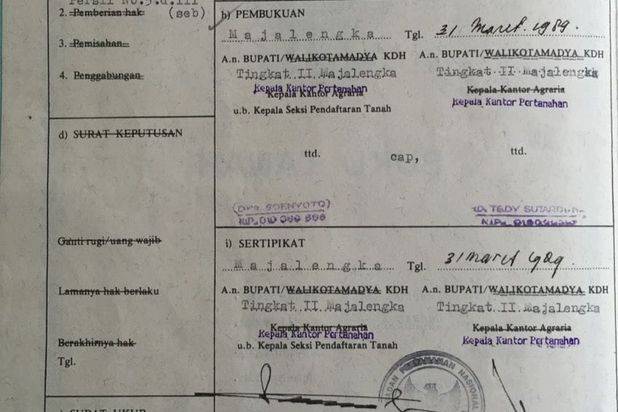 2. Pemberian hak (seb)
3. Pemisahan
4. Penggabungan
d) SURAT KEPUTUSAN
Ganti rugi/uang wajib
Lamanya hak berlaku
Berakhirnya hak
Tgl.
b) PEMBUKUAN
Majalengka Tgl. 31 Maret 1989.
A.n. BUPATI/WALIKOTAMADYA KDH A.n. BUPATI/WALIKOTAMADYA KDH
Tingkat II Majalengka Tingkat II Majalengka
Kepala Kantor Pertanahan
Kepala Kantor Agraria Kepala Kantor Agraria
Kepala Kantor Pertanahan
u.b. Kepala Seksi Pendaftaran Tanah
ttd. cap, ttd.
NIP.
i) SERTIPIKAT
Majalengka Tgl. 31 Maret 1989.
A.n. BUPATI/WALIKOTAMADYA KDH A.n. BUPATI/WALIKOTAMADYA KDH
Tingkat II Majalengka Tingkat II Majalengka
Kepala Kantor Agraria Kepala Kantor Agraria
Kepala Kantor Pertanahan Kepala Kantor Pertanahan
u.b. Kepala Seksi Pendaftaran Tanah
BADAN PERTANAHAN NASIONAL